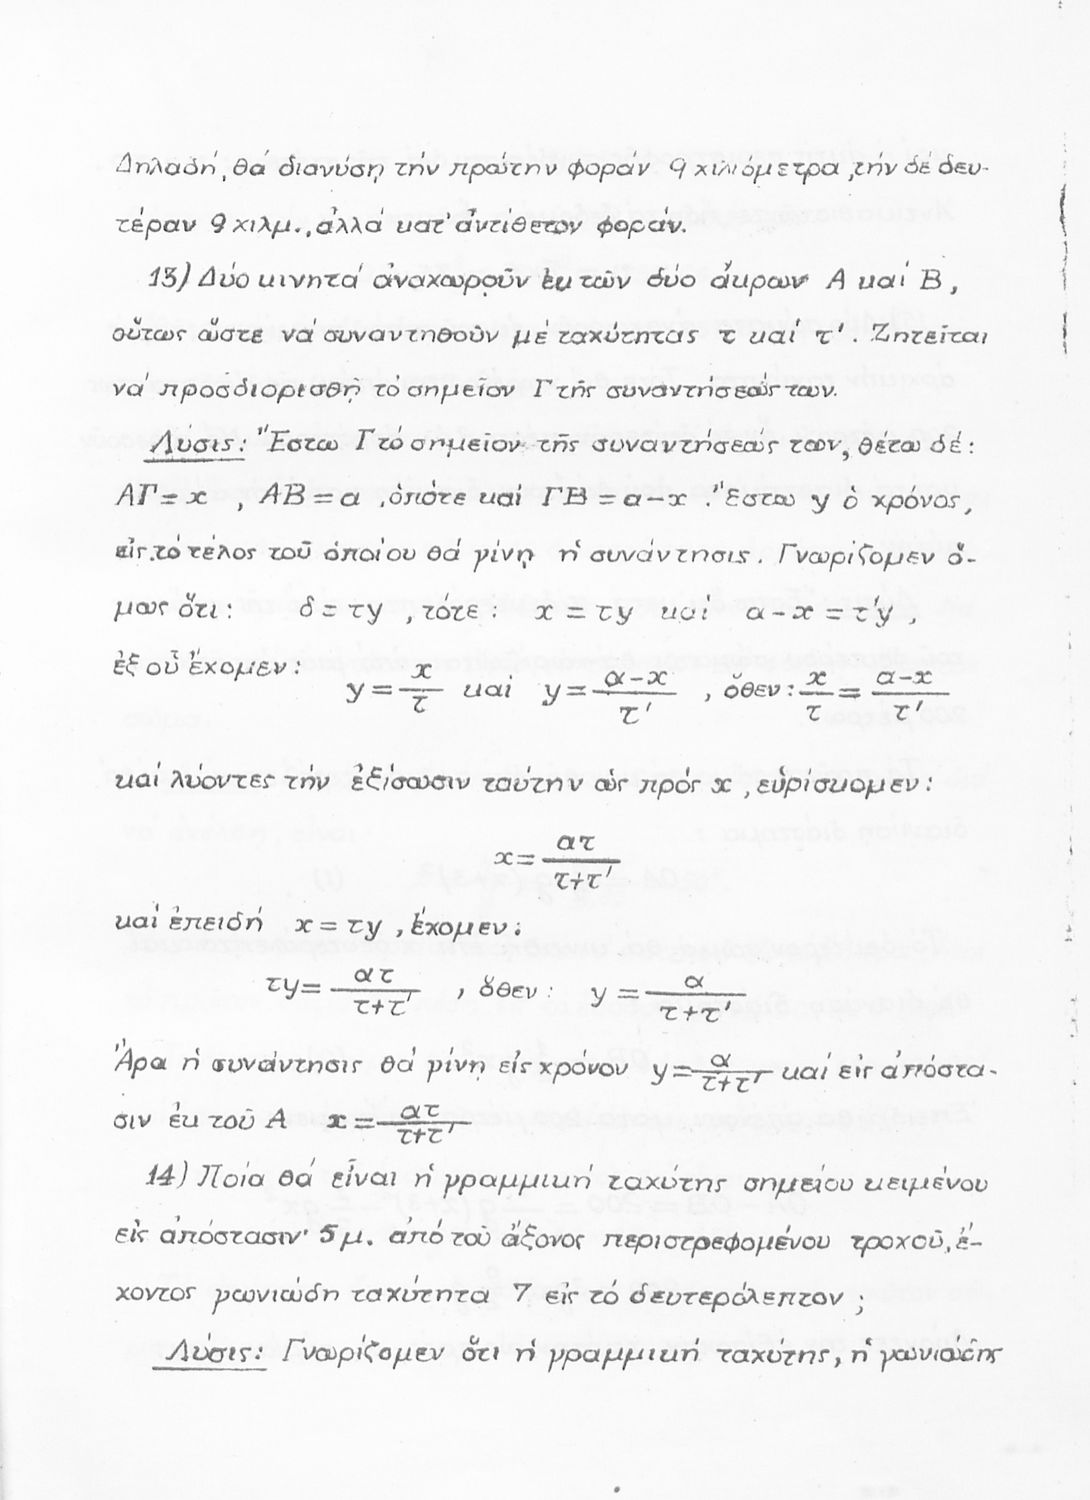 Δηλαδή, θά διανύσῃ τήν πρώτην φοράν 9 χιλιόμετρα, τήν δέ δευ-
τέραν 9 χιλμ., ἀλλά κατ' ἀντίθετον φοράν.
13) Δύο κινητά ἀναχωροῦν ἐκ τῶν δύο ἄκρων A καί B,
οὕτως ὥστε νά συναντηθοῦν μέ ταχύτητας τ καί τ'. Ζητεῖται
νά προσδιορισθῇ τό σημεῖον Γ τῆς συναντήσεώς των.
Λύσις: Ἔστω Γ τό σημεῖον τῆς συναντήσεώς των, θέτω δέ:
ΑΓ = x , ΑΒ = α , ὁπότε καί ΓΒ = α-x . Ἔστω y ὁ χρόνος,
εἰς τό τέλος τοῦ ὁποίου θά γίνῃ ἡ συνάντησις. Γνωρίζομεν ὅ-
μως ὅτι: δ = τy , τότε: x = τy καί α-x = τ'y ,
ἐξ οὗ ἔχομεν: y = x/τ καί y = α-x/τ' , ὅθεν: x/τ = α-x/τ'
καί λύοντες τήν ἐξίσωσιν ταύτην ὡς πρός x , εὑρίσκομεν:
x = ατ/τ+τ'
καί ἐπειδή x = τy , ἔχομεν:
τy = ατ/τ+τ' , ὅθεν: y = α/τ+τ'
Ἄρα ἡ συνάντησις θά γίνῃ εἰς χρόνον y = α/τ+τ' καί εἰς ἀπόστα-
σιν ἐκ τοῦ A x = ατ/τ+τ'
14) Ποία θά εἶναι ἡ γραμμική ταχύτης σημείου κειμένου
εἰς ἀπόστασιν 5 μ. ἀπό τοῦ ἄξονος περιστρεφομένου τροχοῦ, ἔ-
χοντος γωνιώδη ταχύτητα 7 εἰς τό δευτερόλεπτον ;
Λύσις: Γνωρίζομεν ὅτι ἡ γραμμική ταχύτης, ἡ γωνιώδης